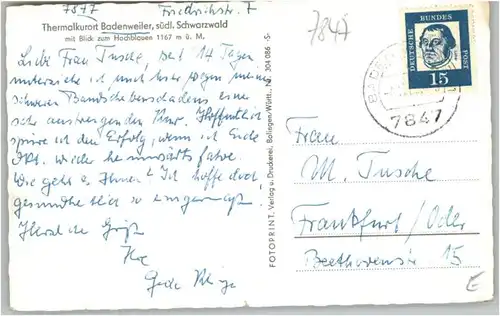 7847 Friedrichstr. 7
Thermalkurort Badenweiler, südl. Schwarzwald
mit Blick zum Hochblauen 1167 m ü. M.
Liebe Frau Tusche, seit 14 Tagen
unterziehe ich mich hier wegen meines
schweren Bandscheibenschadens einer
sehr anstrengenden Kur. Hoffentlich
spüre ich den Erfolg, wenn ich Ende
Okt. wieder heimwärts fahre.
Wie geht es Ihnen? Ich hoffe doch,
gesundheitlich so einigermaßen.
Herzliche Grüße
Ihre
FOTOPRINT, Verlag u. Druckerei, Balingen/Württ., Nr. 304 086 -S-
7847
DEUTSCHE BUNDES POST
15
7847
Frau
M. Tusche
Frankfurt/Oder
Beethovenstr. 15
E